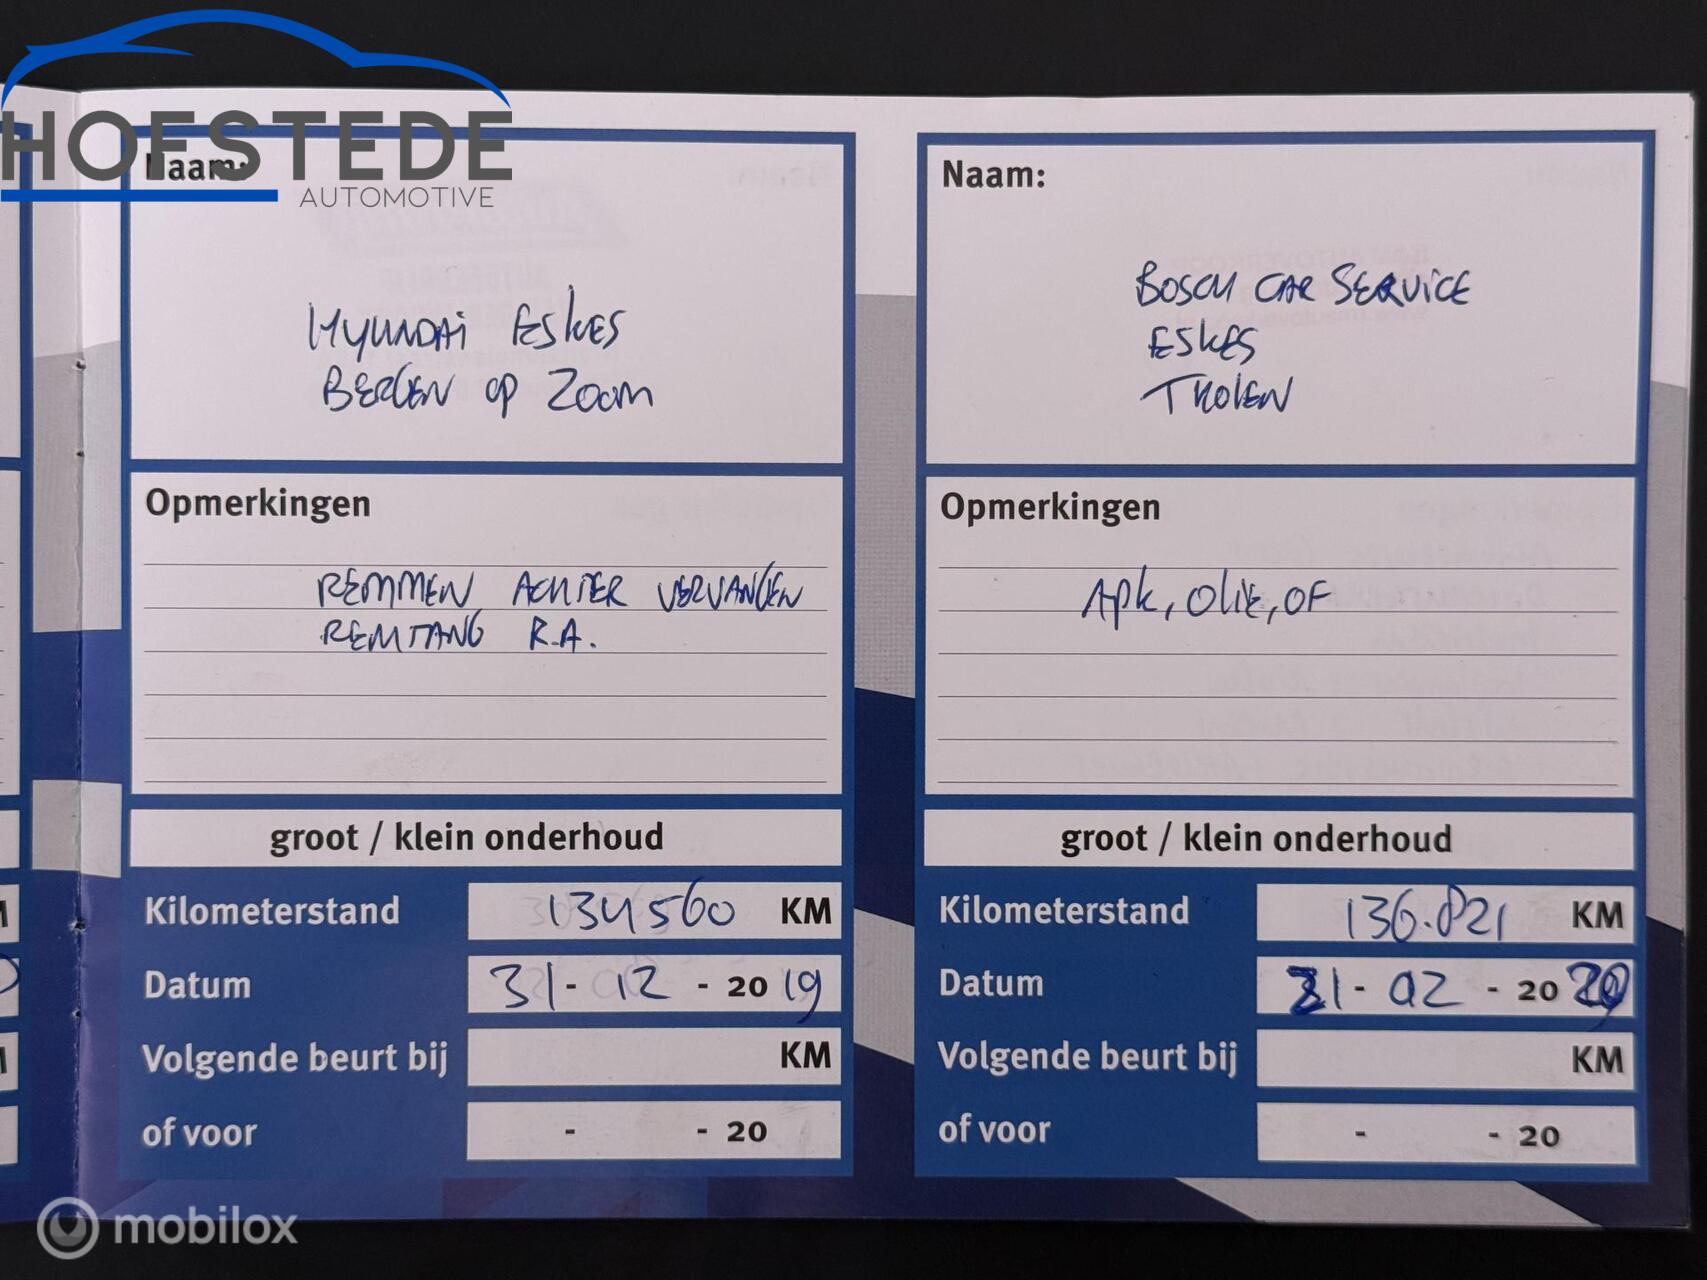 HOFSTEDE
AUTOMOTIVE
Naam:
HYUNDAI ESKES
BERGEN OP ZOOM
Opmerkingen
REMMEN ACHTER VERVANGEN
REMTANG R.A.
groot / klein onderhoud
Kilometerstand 134560 KM
Datum 31 - 12 - 20 19
Volgende beurt bij KM
of voor - - 20
Naam:
BOSCH CAR SERVICE
ESKES
THOLEN
Opmerkingen
APK, OLIE, OF
groot / klein onderhoud
Kilometerstand 136.821 KM
Datum 21 - 02 - 20 20
Volgende beurt bij KM
of voor - - 20
mobilox